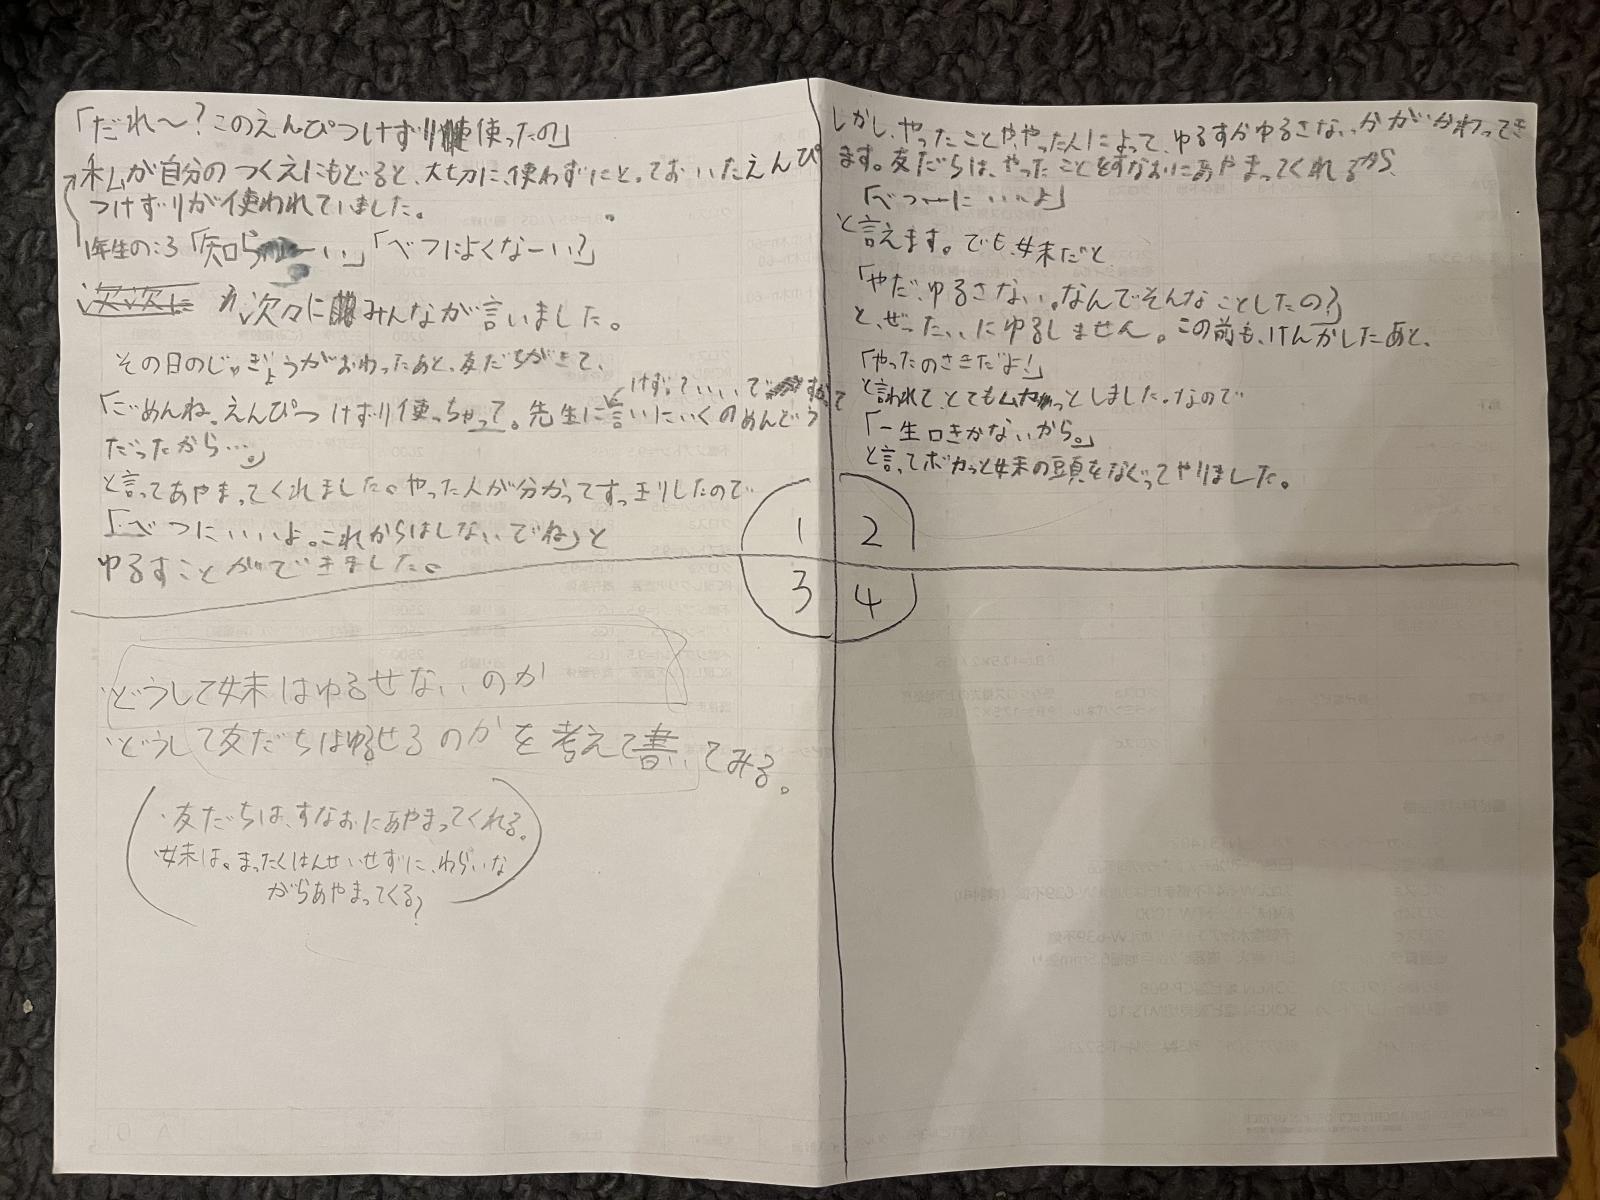 「だれ〜?このえんぴつけずり使ったの」
私が自分のつくえにもどると、大切に、使わずにとっておいたえんぴ
つけずりが使われていました。
1年生のころ「知らなーい」「べつによくなーい?」
次々に
次々にみんなが言いました。
その日のじゅぎょうがおわったあと、友だちがきて、
けずっていいですかって
「ごめんね。えんぴつけずり使っちゃって。先生に言いにいくのめんどう
だったから…。」
と言ってあやまってくれました。やった人が分かってすっきりしたので
「べつにいいよ。これからはしないでね」と
ゆるすことができました。
しかし、やったことや、やった人によって、ゆるすかゆるさないかがかわってき
ます。友だちは、やったことをすなおにあやまってくれるから、
「べつーにいいよ」
と言えます。でも、妹だと
「やだ、ゆるさない。なんでそんなことしたの?」
と、ぜったいにゆるしません。この前も、けんかしたあと、
「やったのさきだよ!」
と言われて、とてもムカッとしました。なので
「一生口きかないから。」
と言ってボカッと妹の頭をなぐってやりました。
1 2
3 4
・どうして妹はゆるせないのか
・どうして友だちはゆるせるのかを考えて書いてみる。
・友だちは、すなおにあやまってくれる。
・妹は。まったくはんせいせずに、わらいな
がらあやまってくる?